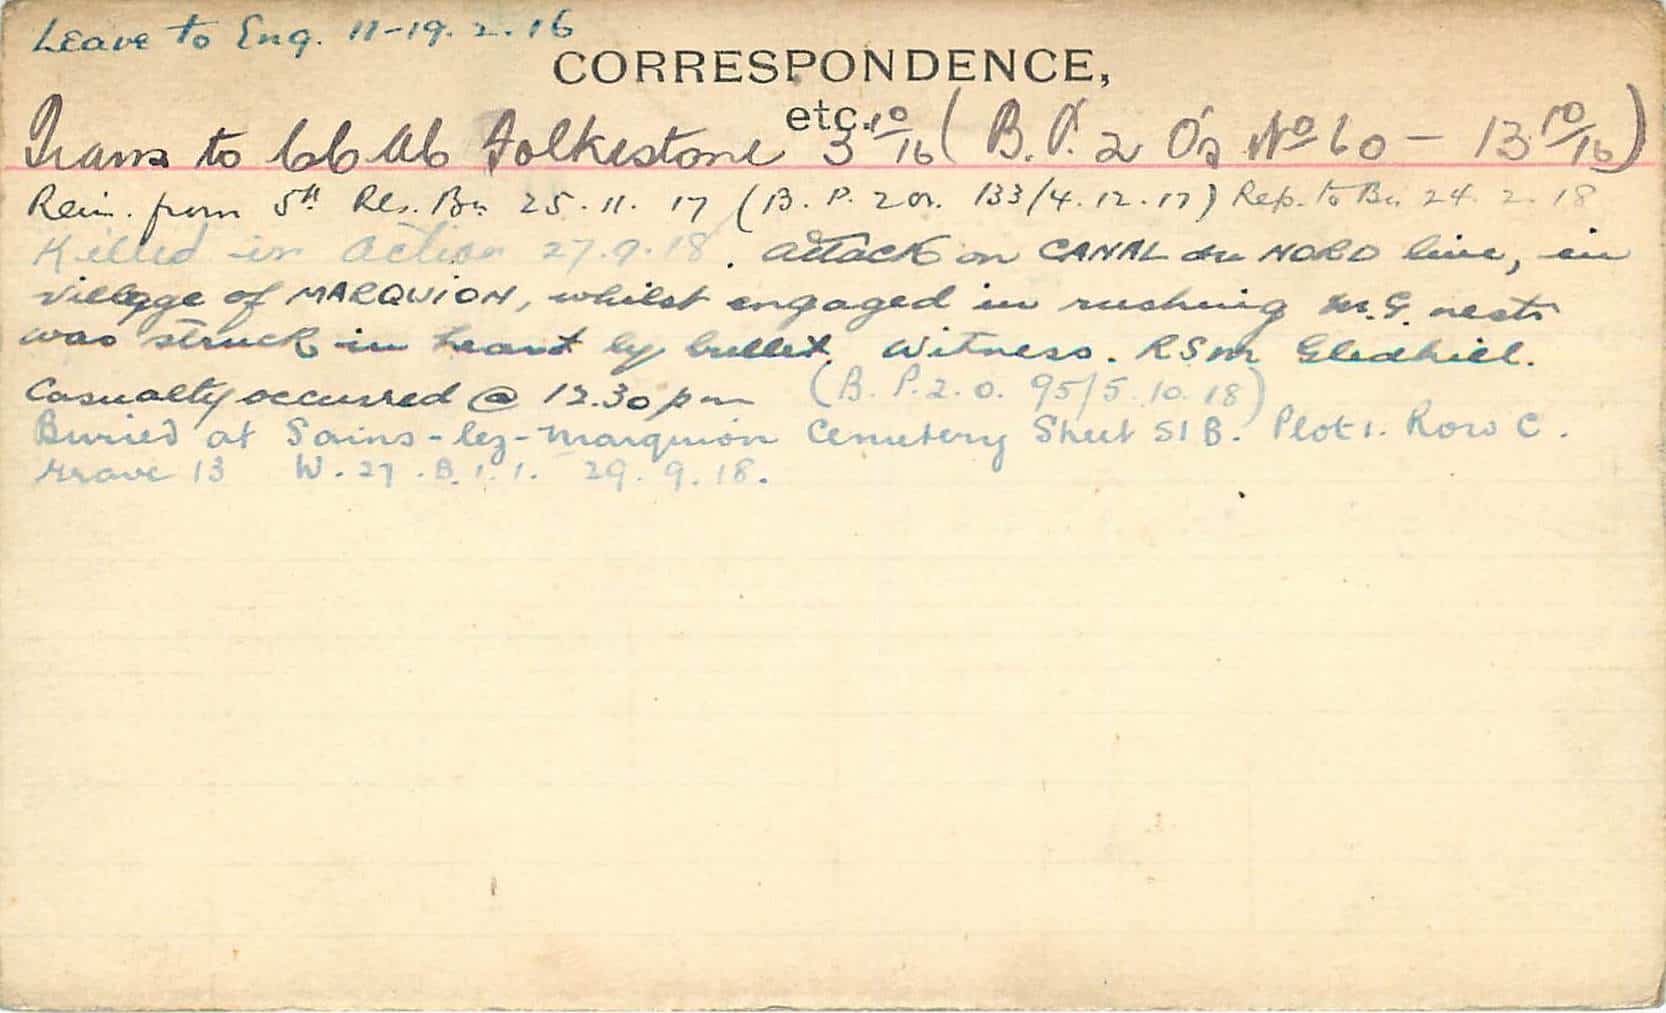 Leave to Eng. 11-19. 2. 16
CORRESPONDENCE,
etc.
Trans to CCAC Folkestone 3 10/16 (B. P. 2 O's No 60 - 13 10/16)
Rein. from 5th Res. Bn. 25. 11. 17 (B. P. 2 or. 133/4. 12. 17) Rep. to Bn. 24. 2. 18
Killed in Action 27.9.18. attack on CANAL du NORD line, in
village of MARQUION, whilst engaged in rushing M.G. nests
was struck in heart by bullet. Witness. RSM Gledhill.
Casualty occurred @ 12.30 pm (B. P. 2. 0. 95/5. 10. 18)
Buried at Sains-lez-Marquion Cemetery Sheet 51 B. Plot 1. Row C.
Grave 13 W. 27. B. 1. 1. 29. 9. 18.